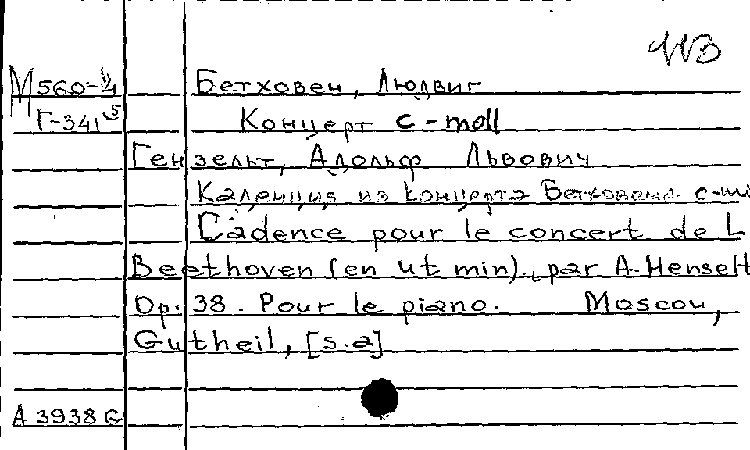 М 560-4 Бетховен, Людвиг
Г-341 Концерт c-moll
Гензельт, Адольф Львович
Каденция из концерта Бетховена c-mi
Cadence pour le concert de L
Beethoven (en ut min). par A. Henselt
Op. 38. Pour le piano. Moscou,
Gutheil, [s.a]
A 3938